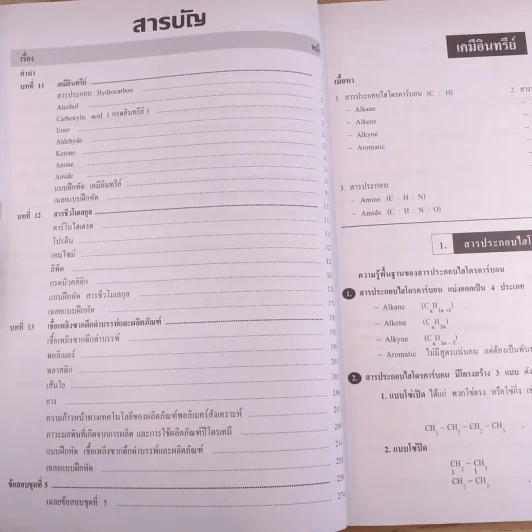 สารบัญ
เรื่อง
คำนำ
บทที่ 11 เคมีอินทรีย์
สารประกอบ Hydrocarbon
Alcohol
Carboxylic acid ( กรดอินทรีย์ )
Ester
Aldehyde
Ketone
Amine
Amide
แบบฝึกหัด เคมีอินทรีย์
เฉลยแบบฝึกหัด
บทที่ 12 สารชีวโมเลกุล
คาร์โบไฮเดรต
โปรตีน
เอนไซม์
ลิพิด
กรดนิวคลิอิก
แบบฝึกหัด สารชีวโมเลกุล
เฉลยแบบฝึกหัด
บทที่ 13 เชื้อเพลิงซากดึกดำบรรพ์และผลิตภัณฑ์
เชื้อเพลิงซากดึกดำบรรพ์
พอลิเมอร์
พลาสติก
เส้นใย
ยาง
ความก้าวหน้าทางเทคโนโลยีของผลิตภัณฑ์พอลิเมอร์สังเคราะห์
ภาวะมลพิษที่เกิดจากการผลิต และการใช้ผลิตภัณฑ์ปิโตรเคมี
แบบฝึกหัด เชื้อเพลิงซากดึกดำบรรพ์และผลิตภัณฑ์
เฉลยแบบฝึกหัด
ข้อสอบชุดที่ 5
เฉลยข้อสอบชุดที่ 5
เคมีอินทรีย์
เนื้อหา
1. สารประกอบไฮโดรคาร์บอน (C : H)
– Alkane
– Alkene
– Alkyne
– Aromatic
2.
3. สารประกอบ
– Amine (C : H : N)
– Amide (C : H : N : O)
1. สารประกอบไฮโ
ความรู้พื้นฐานของสารประกอบไฮโดรคาร์บอน
1. สารประกอบไฮโดรคาร์บอน แบ่งออกเป็น 4 ประเภท
– Alkane (CnH2n+2)
– Alkene (CnH2n)
– Alkyne (CnH2n–2)
– Aromatic ไม่มีสูตรแน่นอน แต่ต้องเป็นพันธ
2. สารประกอบไฮโดรคาร์บอน มีโครงสร้าง 3 แบบ
1. แบบโซ่เปิด ได้แก่ พวกโซ่ตรง หรือโซ่กิ่ง
CH3 – CH2 – CH2 – CH3 ,
2. แบบโซ่ปิด
CH2 – CH2
CH2 – CH2 ,